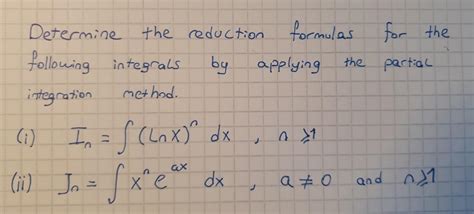 Determine the reduction formulas for the
following integrals by applying the partial
integration method.
(i) Iₙ = ∫ (Ln X)ⁿ dx , n ⩾ 1
(ii) Jₙ = ∫ xⁿ eᵃˣ dx , a ≠ 0 and n ⩾ 1